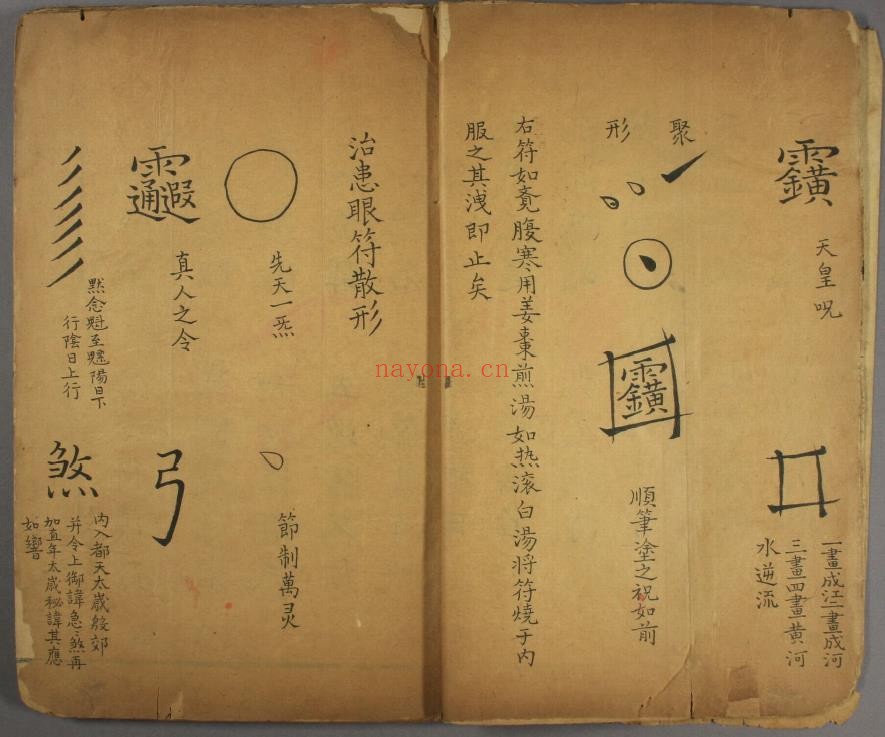 天皇呪
一畫成江二畫成河
三畫四畫黄河
水逆流
聚
形
順筆塗之祝如前
右符如覔腹寒用姜棗煎湯如热滚白湯将符燒于内
服之其洩即止矣
治患眼符散形
先天一炁
節制萬灵
真人之令
弓
黙念魁至魒陽日下
行陰日上行
煞
内入都天太歲殷郊
并令上御諱急急煞再
加直年太歲秘諱其應
如響
nayona.cn